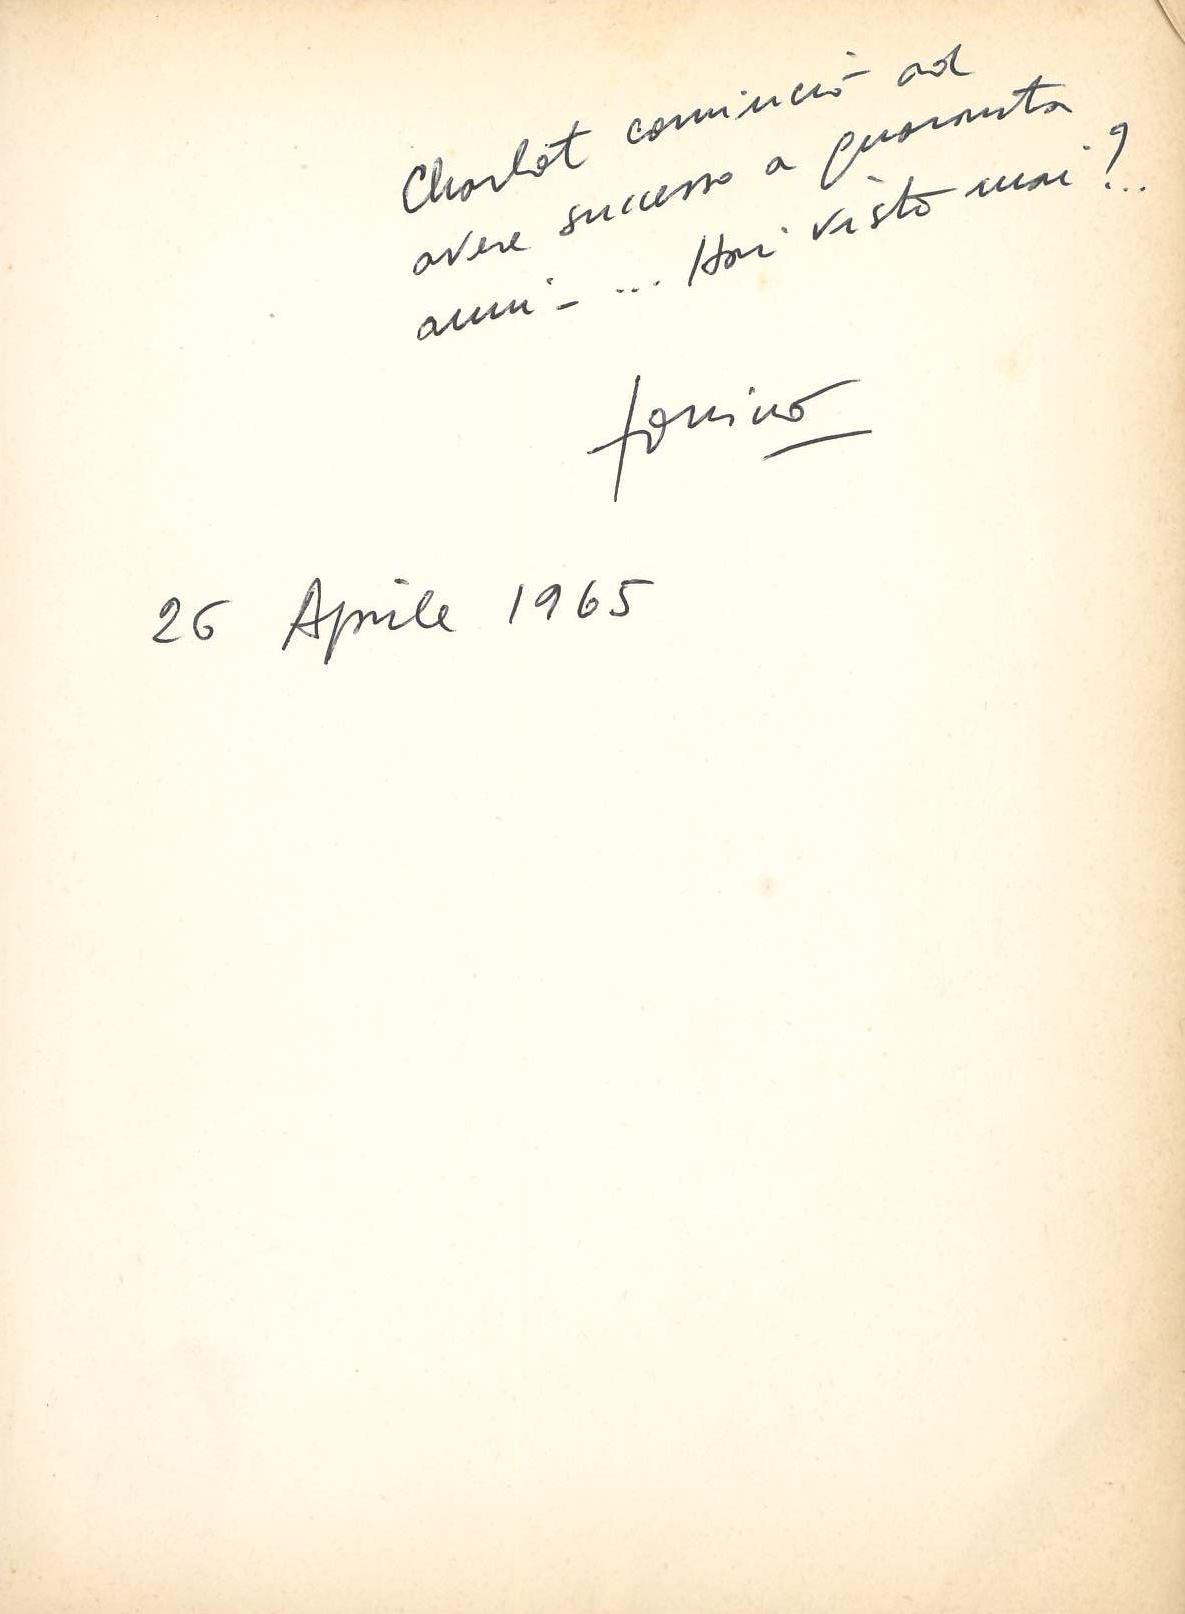 Charlot cominciò ad
avere successo a quaranta
anni - ... Hai visto mai?..
Tonino
26 Aprile 1965